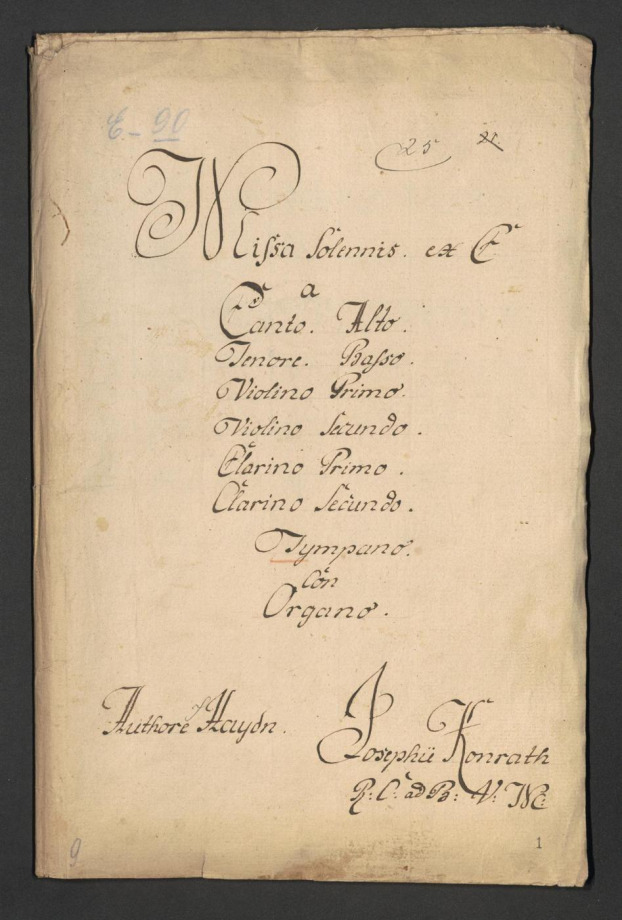 E - 90
25 21
Missa Solennis. ex C
a
Canto. Alto.
Tenore. Basso.
Violino Primo.
Violino Secundo.
Clarino Primo.
Clarino Secundo.
Tympano.
Con
Organo.
Authore Haydn.
Josephü Konrath
R: C: ad B: V: M:
9
1